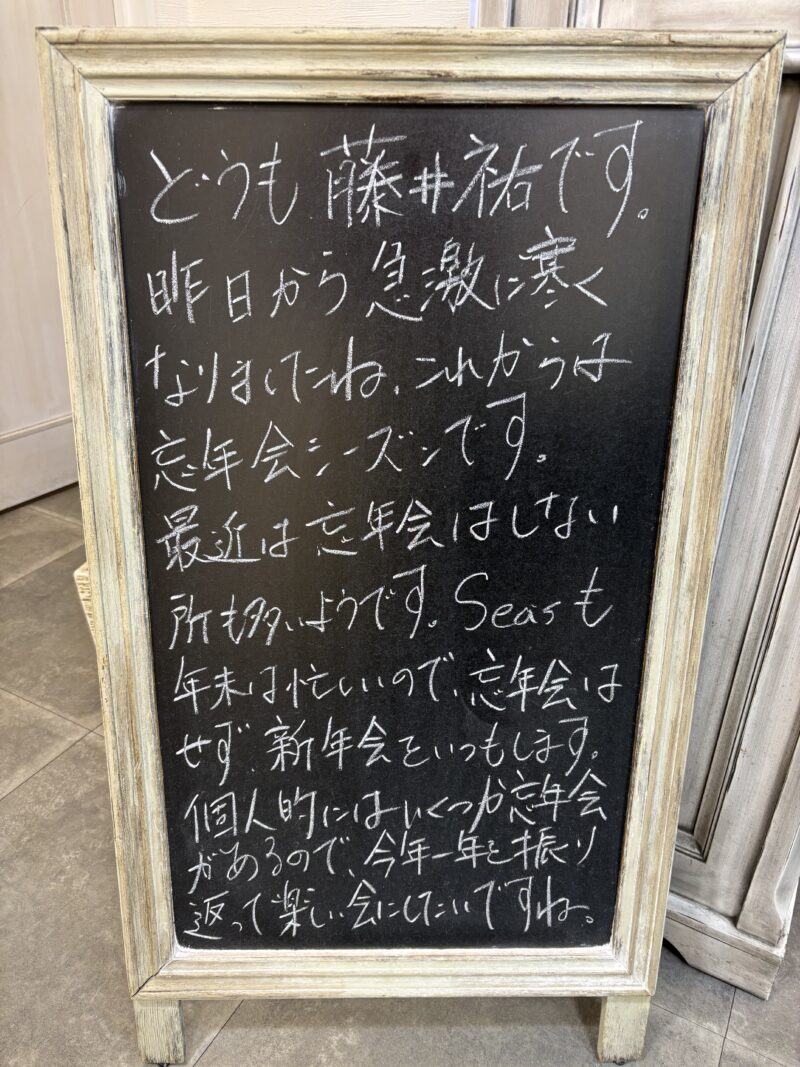 どうも藤井祐です。
昨日から急激に寒く
なりましたね、これからは
忘年会シーズンです。
最近は忘年会はしない
所も多いようです。Seasも
年末は忙しいので、忘年会は
せず、新年会をいつもします。
個人的にはいくつか忘年会
があるので、今年一年を振り
返って楽しい会にしたいですね。